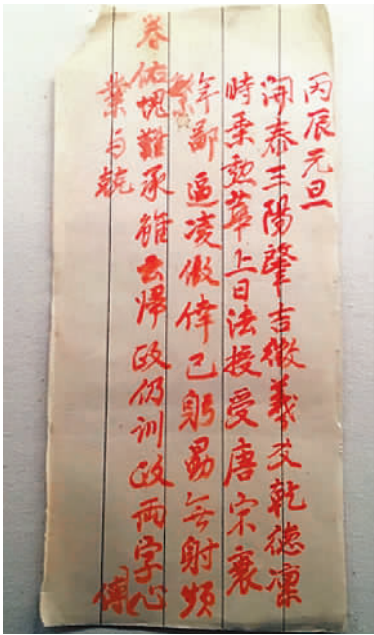 丙辰元旦
開泰三陽肇吉徵羲爻乾德凜
時乘勳華上日法授受唐宋衰
年鄙逼凌倣倖己躬勗无射頻
繁
眷佑愧難承雖云歸政仍訓政兩字心
傳
業与兢